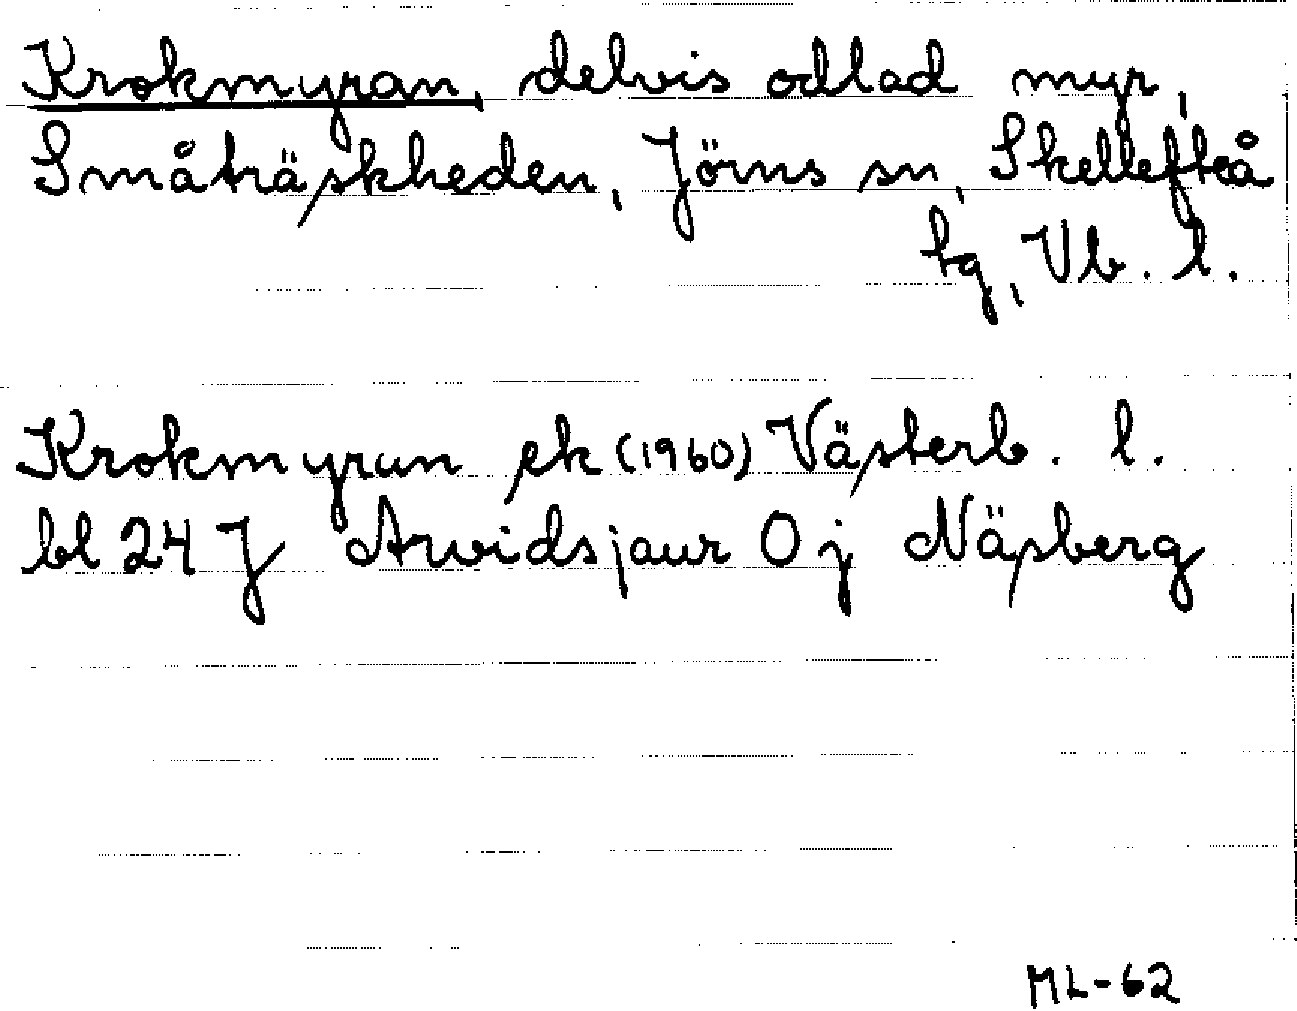 Krokmyran, delvis odlad myr,
Småträskheden, Jörns sn, Skellefteå
tg, Vb. l.
Krokmyran ek (1960) Västerb. l.
bl 24 J Arvidsjaur O j Näsberg
ML-62